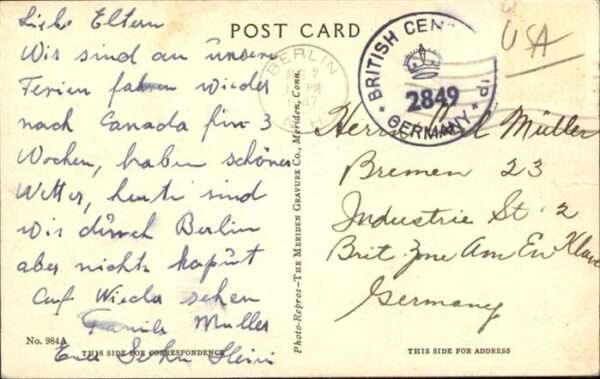 POST CARD
Liebe Eltern
Wir sind an unsern
Ferien fahren wieder
nach Canada für 3
Wochen, haben schönes
Wetter, heute sind
wir durch Berlin
aber nichts kaput
Auf Wieder sehen
Familie Muller
Euer Sohn Heini
No. 984A
THIS SIDE FOR CORRESPONDENCE
Photo-Repros—The Meriden Gravure Co., Meriden, Conn.
BERLIN
PM
N.H.
BRITISH CEN
2849
GERMANY
USA
Herrn Carl Müller
Bremen 23
Industrie St. 2
Brit. Zone Am En
Germany
THIS SIDE FOR ADDRESS